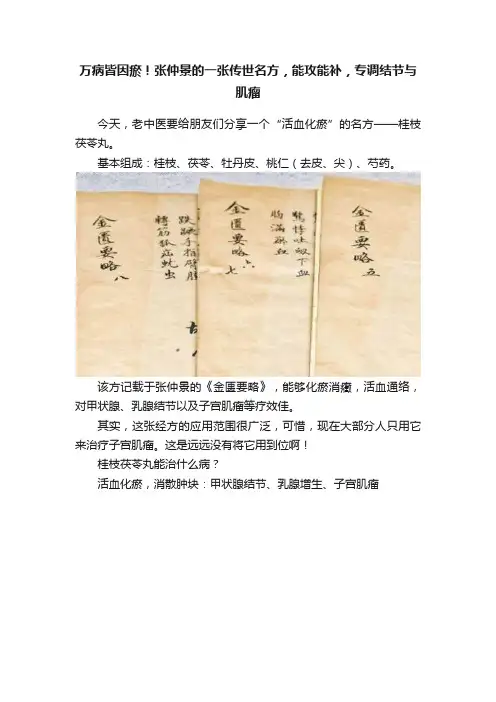 万病皆因瘀！张仲景的一张传世名方，能攻能补，专调结节与
肌瘤
今天，老中医要给朋友们分享一个“活血化瘀”的名方——桂枝
茯苓丸。
基本组成：桂枝、茯苓、牡丹皮、桃仁（去皮、尖）、芍药。
金匱要略八
趺蹶手指臂腫
轉筋狐疝蚘虫
金匱要略六
七
驚悸吐衂下血
胸滿瘀血
金匱要略五
该方记载于张仲景的《金匮要略》，能够化瘀消癥，活血通络，
对甲状腺、乳腺结节以及子宫肌瘤等疗效佳。
其实，这张经方的应用范围很广泛，可惜，现在大部分人只用它
来治疗子宫肌瘤。这是远远没有将它用到位啊！
桂枝茯苓丸能治什么病？
活血化瘀，消散肿块：甲状腺结节、乳腺增生、子宫肌瘤